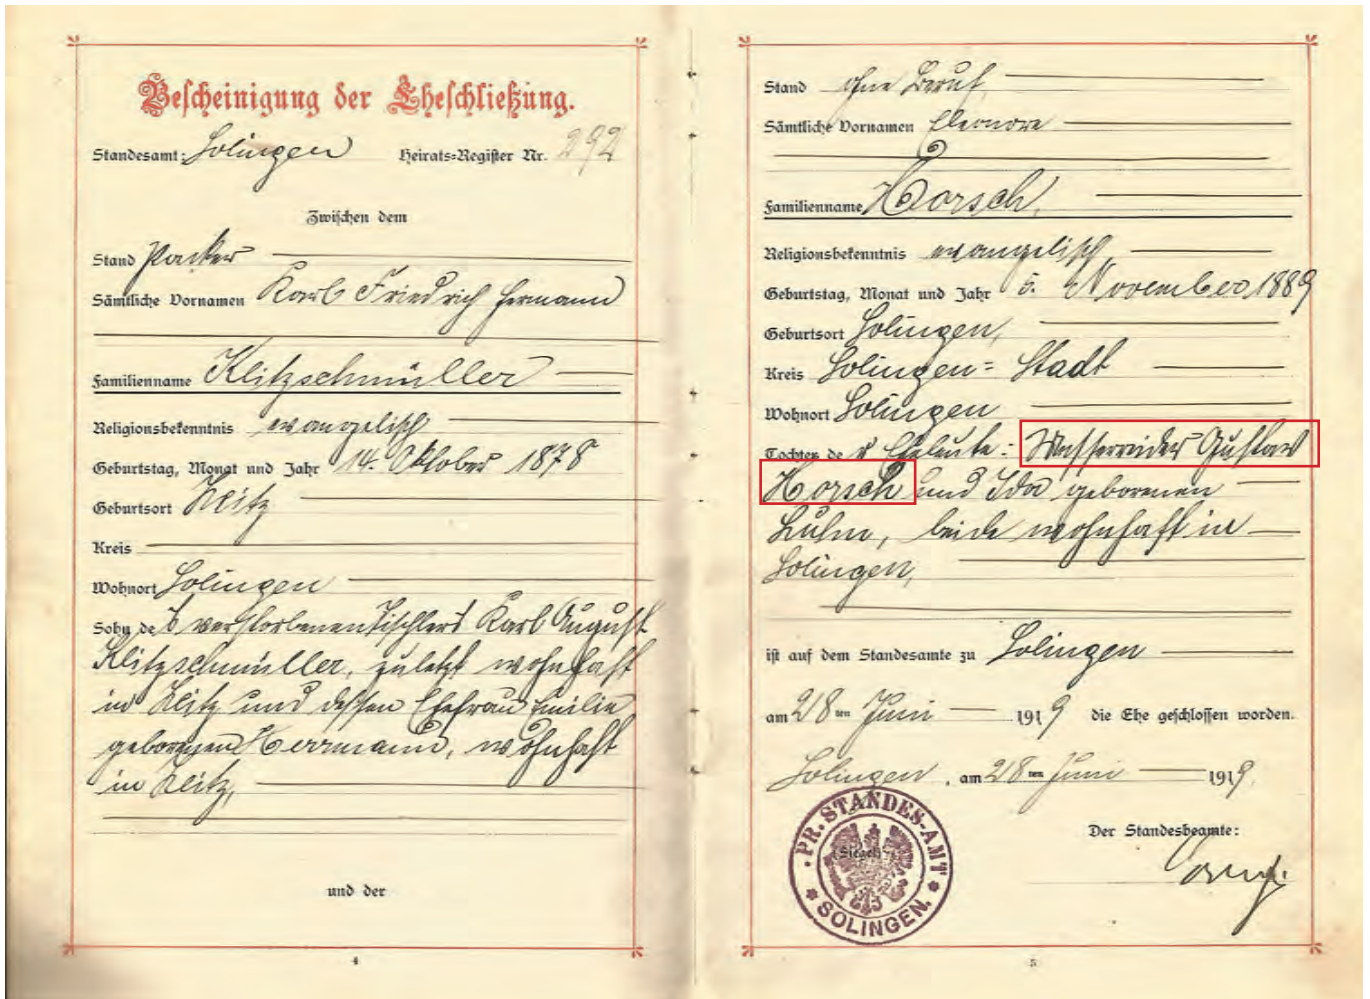 Bescheinigung der Eheschließung.
Standesamt: Solingen Heirats-Register Nr. 292
Zwischen dem
Stand Packer
Sämtliche Vornamen Karl Friedrich Hermann
Familienname Klitzschmüller
Religionsbekenntnis evangelisch
Geburtstag, Monat und Jahr 14. Oktober 1878
Geburtsort
Kreis
Wohnort Solingen
Sohn des verstorbenen Tischlers Karl August
Klitzschmüller, zuletzt wohnhaft
in und dessen Ehefrau Emilie
geborenen Herrmann, wohnhaft
in
und der
4
Stand ohne Beruf
Sämtliche Vornamen Eleonore
Familienname Horsch,
Religionsbekenntnis evangelisch
Geburtstag, Monat und Jahr 5. November 1889
Geburtsort Solingen,
Kreis Solingen = Stadt
Wohnort Solingen
Tochter der Eheleute: Gustav
Horsch und Ida geborenen
beide wohnhaft in
Solingen,
ist auf dem Standesamte zu Solingen
am 28ten Juni 1919 die Ehe geschlossen worden.
Solingen, am 28ten Juni 1919.
Der Standesbeamte:
PR. STANDES-AMT
(Siegel)
SOLINGEN.
5